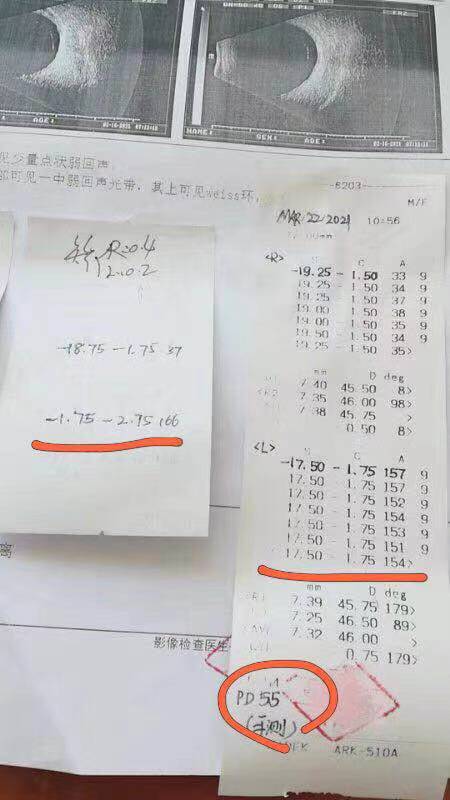 NAME:
NAME:
SEX:
AGE:
见少量点状弱回声
部可见一中弱回声光带，其上可见weiss环，
R:0.4
L:0.2
-18.75 -1.75 37
-1.75 -2.75 166
离
影像检查医生
6203
M/F
MAR.22.2021 10:56
<R> S C A
-19.25 - 1.50 33 9
19.25 - 1.50 34 9
19.25 - 1.50 37 9
19.00 - 1.50 38 9
19.00 - 1.50 35 9
19.50 - 1.50 34 9
19.25 - 1.50 35>
mm D deg
7.40 45.50 8>
7.35 46.00 98>
7.38 45.75 >
0.50 8>
<L> C A
-17.50 - 1.75 157 9
17.50 - 1.75 157 9
17.50 - 1.75 152 9
17.50 - 1.75 154 9
17.50 - 1.75 153 9
17.50 - 1.75 151 9
17.50 - 1.75 154>
mm D deg
7.39 45.75 179>
7.25 46.50 89>
7.32 46.00 >
0.75 179>
PD 55
(手测)
ARK-510A